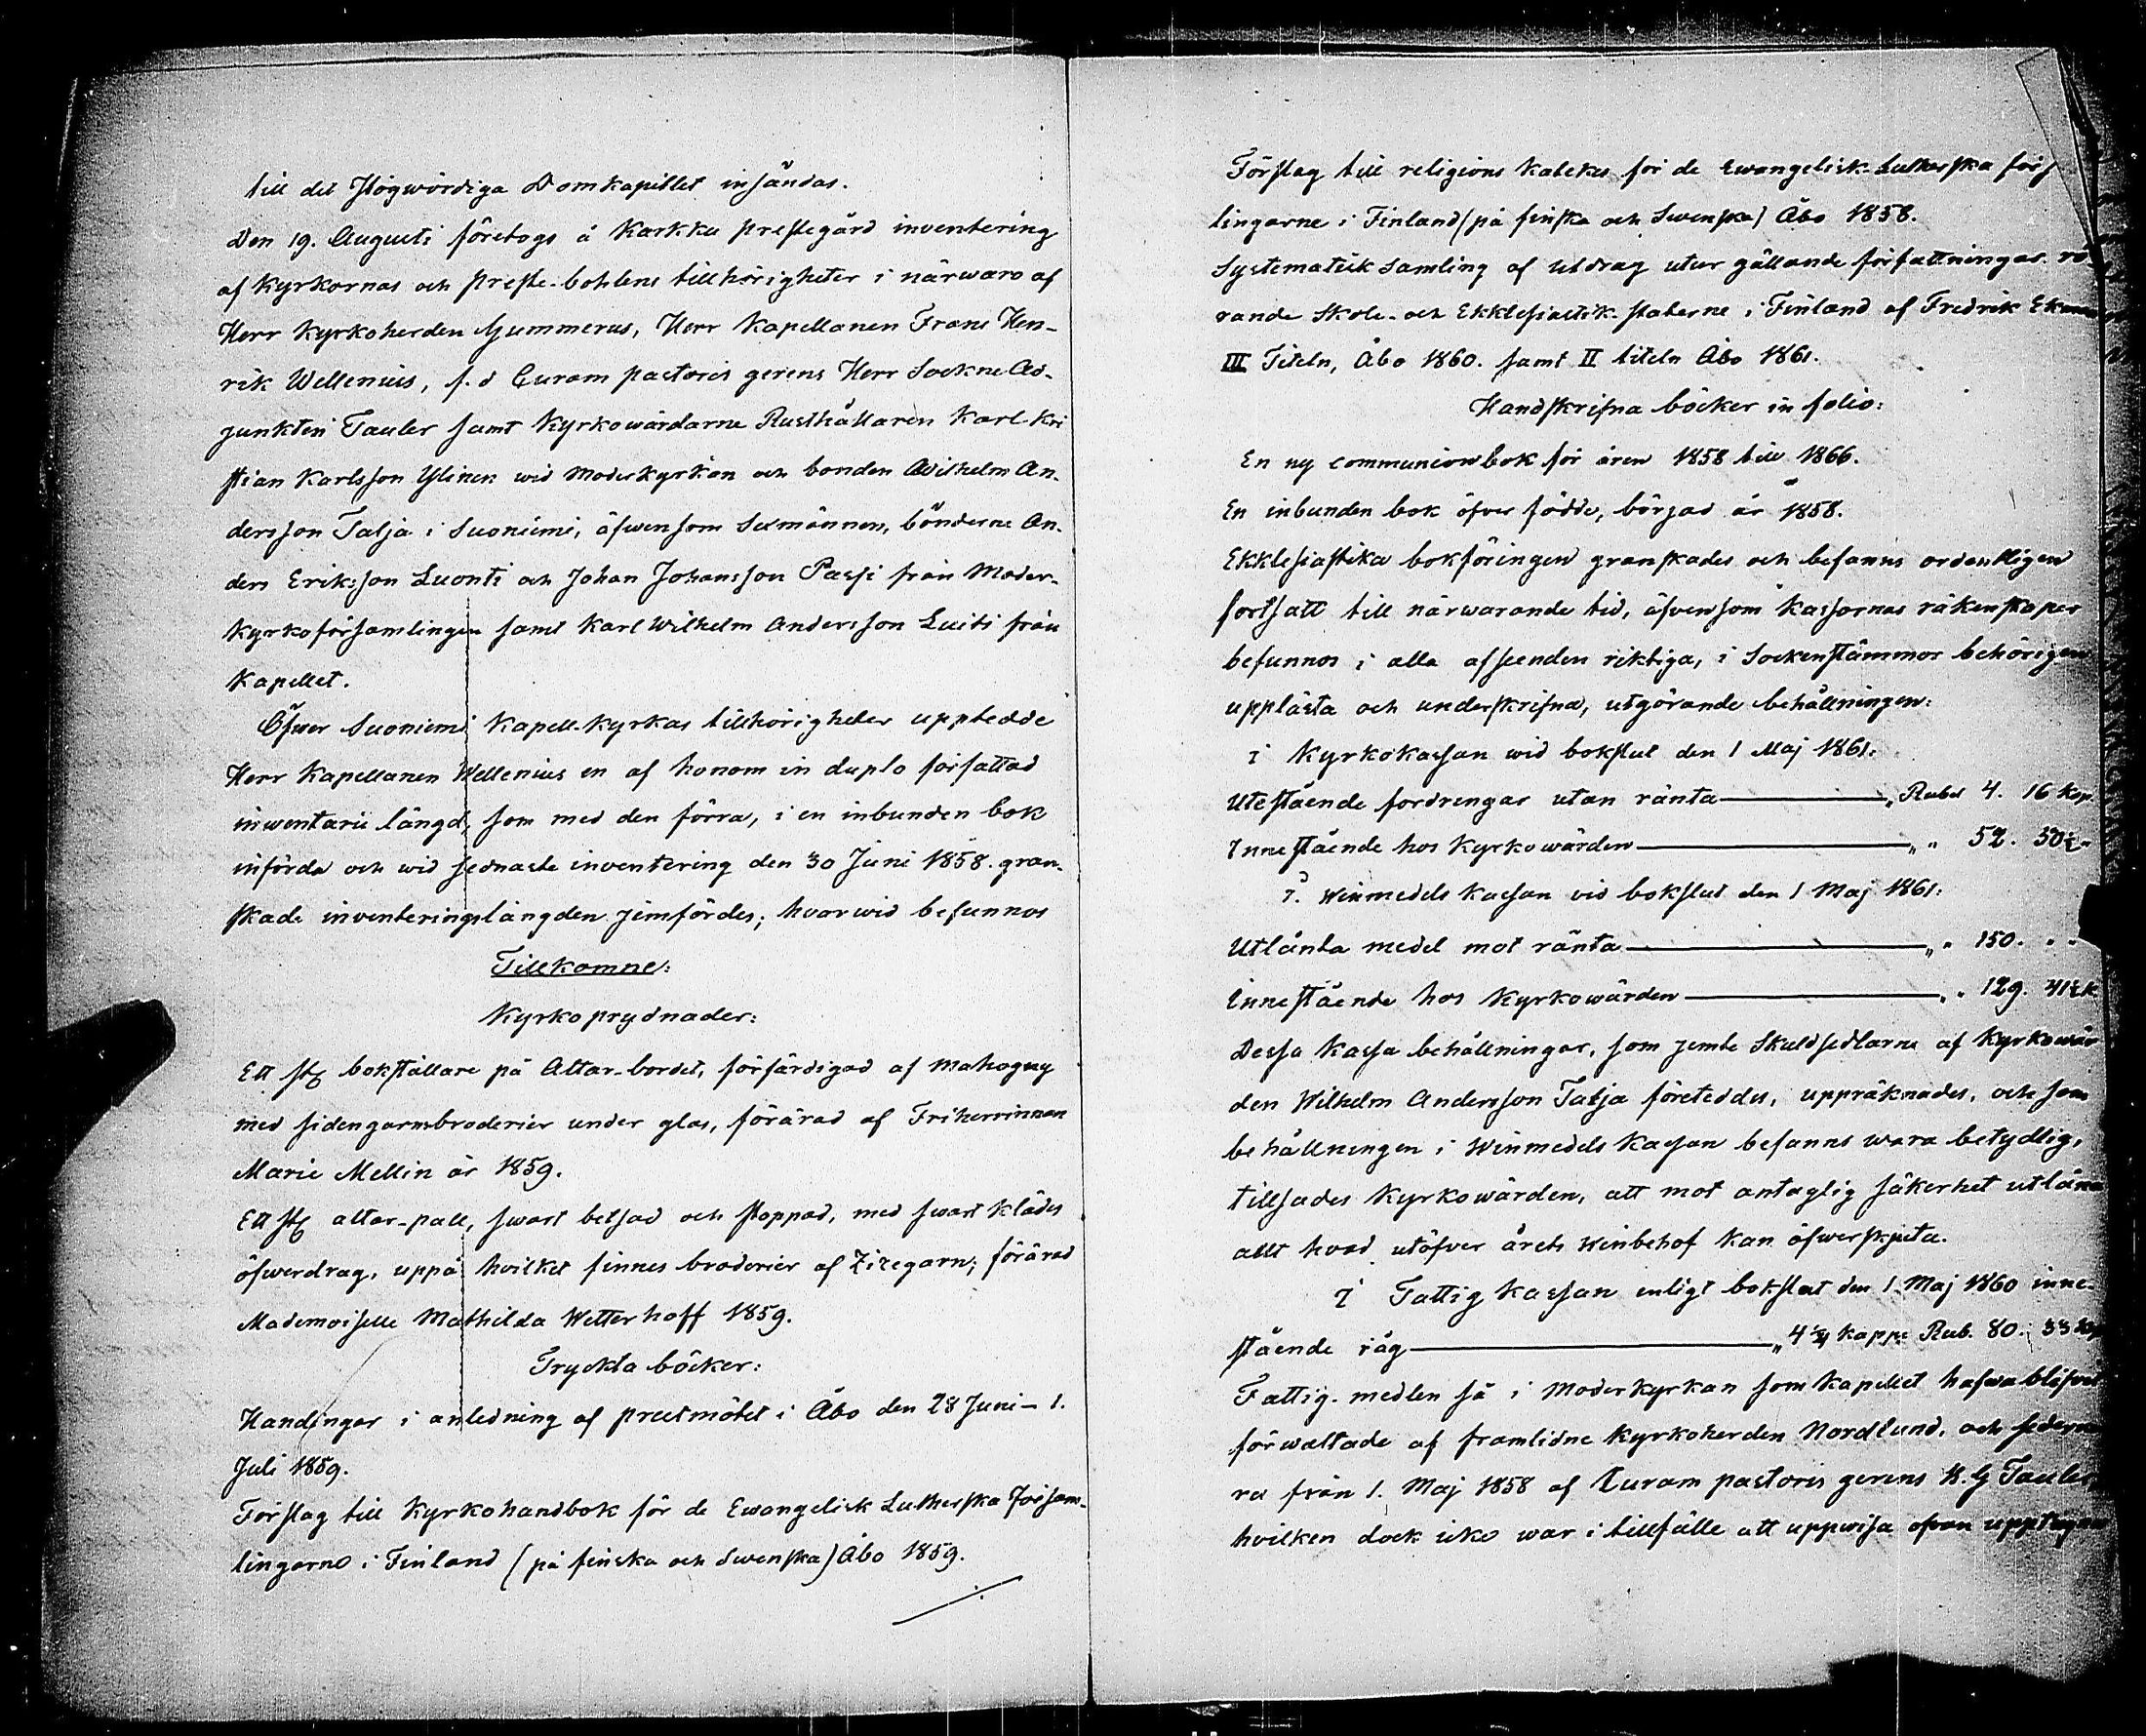 till det Högwördiga Domkapitlet insändas.
Den 19. Augusti företogs å Karkku prestegård inventering
af Kyrkornas och preste-bohlens tillhörigheter i närwaro af
Herr Kyrkoherden Gummerus, Herr Kapellanen Frans Hen-
rik Wellenius, f.d Curam pastoris gerens Herr Sockne Ad-
junkten Tauler samt Kyrkowärdarne Rusthållaren Karl Kri
stian Karlsson Ylinen wid Moderkyrkan och bonden Wilhelm An-
dersson Talja i Suoniemi, äfwensom Sexmännen, bönderne An-
ders Eriksson Luonti och Johan Johansson Passi från Moder-
Kyrkoförsamlingen samt Karl Wilhelm Andersson Luiti från
Kapellet.
Öfwer Suoniemi Kapell-Kyrkas tillhörigheter uppteddde
Herr Kapellanen Wellenius en af honom in duplo författad
inwentarii längd, som med den förra, i en inbunden bok
införda och wid sednaste inventering den 30 Juni 1858. gran-
skade inventeringslängden jemfördes; hvarwid befunnos
Tillkomne:
Kyrkoprydnader:
Ett st bokställare på Altar-bordet, förfärdigad af Mahogny
med sidengarnsbroderier under glas, förärad af Friherrinnan
Marie Mellin år 1859.
Ett st altar-pall, swart betsad och stoppad, med swart klädes
öfwerdrag, uppå hvilket finnes broderier af Ziregarn; förärad
Mademoiselle Mathilda Wetterhoff 1859.
Tryckta böcker:
Handlingar i anledning af prestmötet i Åbo den 28 Juni - 1.
Juli 1859.
Förslag till Kyrkohandbok för de Ewangelisk Lutherska Försam-
lingarne i Finland (på finska och Swenska) Åbo 1859.
./.
Förslag till religions Katekes för de Ewangelisk-Lutherska förs
lingarne i Finland (på finska och Swenska) Åbo 1858.
Systematisk Samling af Utdrag utur gällande författningar rö-
rande Skole- och Ekklesiastik-staterne i Finland af Fredrik
III Titeln, Åbo 1860. samt II titeln Åbo 1861.
Handskrifna böcker in folio:
En ny communionbok för åren 1858 till 1866.
En inbunden bok öfver födde, börjad år 1858.
Ekklesiastika bokföringen granskades och befanns ordentligen
fortsatt till närwarande tid, äfvensom kassornas räkenskaper
befunnos i alla afseenden riktiga, i Sockenstämmor behörigen
upplästa och underskrifna, utgörande behållningen:
i Kyrkokassan wid bokslut den 1 Maj 1861.
Utestående fordringar utan ränta — „ Rubel 4. 16 Kop.
Innestående hos Kyrkowärden — „ „ 52. 50½ „
I. Winmedels Kassan vid bokslut den 1 Maj 1861:
Utlånta medel mot ränta — „ „ 150. „ „
Innestående hos Kyrkowärden — „ „ 129. 41½ K
Dessa Kassa behållningar, som jemte Skuldsedlarne af Kyrkowär
den Wilhelm Andersson Talja företeddes, uppräknades, och som
behållningen i Winmedels Kassan befanns wara betydlig,
tillsades Kyrkowärden, att mot antaglig säkerhet utlåna
allt hvad utöfver årets Winbehof kan öfwerskjuta.
I Fattig kassan enligt bokslut den 1. Maj 1860 inne-
stående råg — „ 4¾ kappe Rub. 80. 33 Kop
Fattig-medlen så i Moderkyrkan som Kapellet hafwa blifvit
förwaltade af framlidne Kyrkoherden Nordlund, och
ra från 1. Maj 1858 af Curam pastoris gerens K. G Tauler,
hvilken dock icke war i tillfälle att uppwisa ofvan